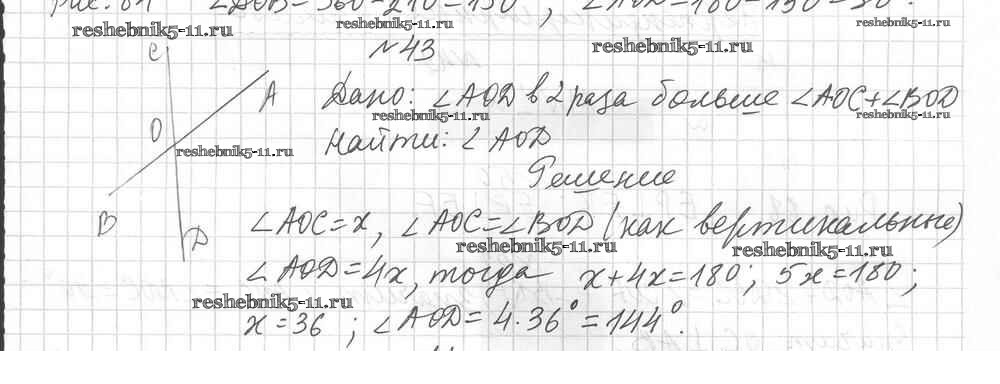 ∠AOB=360-210=150°, ∠AOD=180-150=30°.
reshebnik5-11.ru reshebnik5-11.ru reshebnik5-11.ru
№43
reshebnik5-11.ru
C
A
O
B
D
Дано: ∠AOD в 2 раза больше ∠AOC+∠BOD
reshebnik5-11.ru reshebnik5-11.ru
Найти: ∠AOD
reshebnik5-11.ru
Решение
∠AOC=x, ∠AOC=∠BOD (как вертикальные)
reshebnik5-11.ru reshebnik5-11.ru
∠AOD=4x, тогда x+4x=180; 5x=180;
reshebnik5-11.ru
x=36; ∠AOD=4·36°=144°.